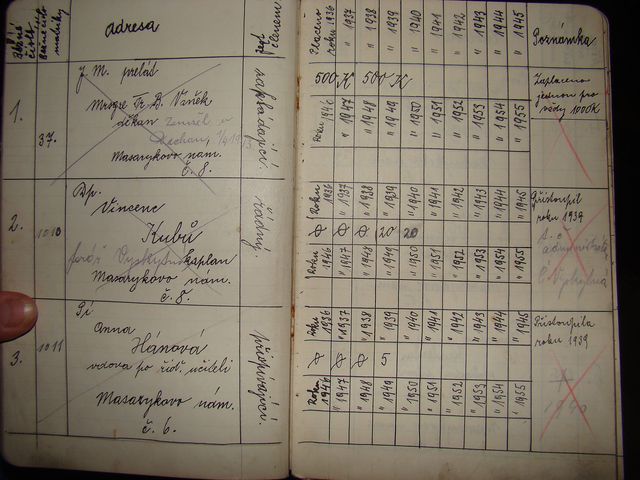 adresa
jak členem
Placeno roku 1936 " 1937 " 1938 " 1939 " 1940 " 1941 " 1942 " 1943 " 1944 " 1945
Poznámka
1.
37.
J. M. prelát
Msgre Fr. B. Vaněk
děkan zemřel v
Masarykovo nám.
č. 8.
zakládající
500 K 500 K
Roku 1946 " 1947 " 1948 " 1949 " 1950 " 1951 " 1952 " 1953 " 1954 " 1955
Zaplaceno
jednou pro
vždy 1000K
2.
1010
Dp.
Vincenc
Kubů
kaplan
Masarykovo nám.
č. 8.
řádný
Roku 1936 " 1937 " 1938 " 1939 " 1940 " 1941 " 1942 " 1943 " 1944 " 1945
0 0 0 20 20
Roku 1946 " 1947 " 1948 " 1949 " 1950 " 1951 " 1952 " 1953 " 1954 " 1955
Přistoupil
roku 1939
3.
1011
Pí
Anna
Hánová
vdova po říd. učiteli
Masarykovo nám.
č. 6.
přispívající
roku 1936 " 1937 " 1938 " 1939 " 1940 " 1941 " 1942 " 1943 " 1944 " 1945
0 0 0 5
Roku 1946 " 1947 " 1948 " 1949 " 1950 " 1951 " 1952 " 1953 " 1954 " 1955
Přistoupila
roku 1939
1940